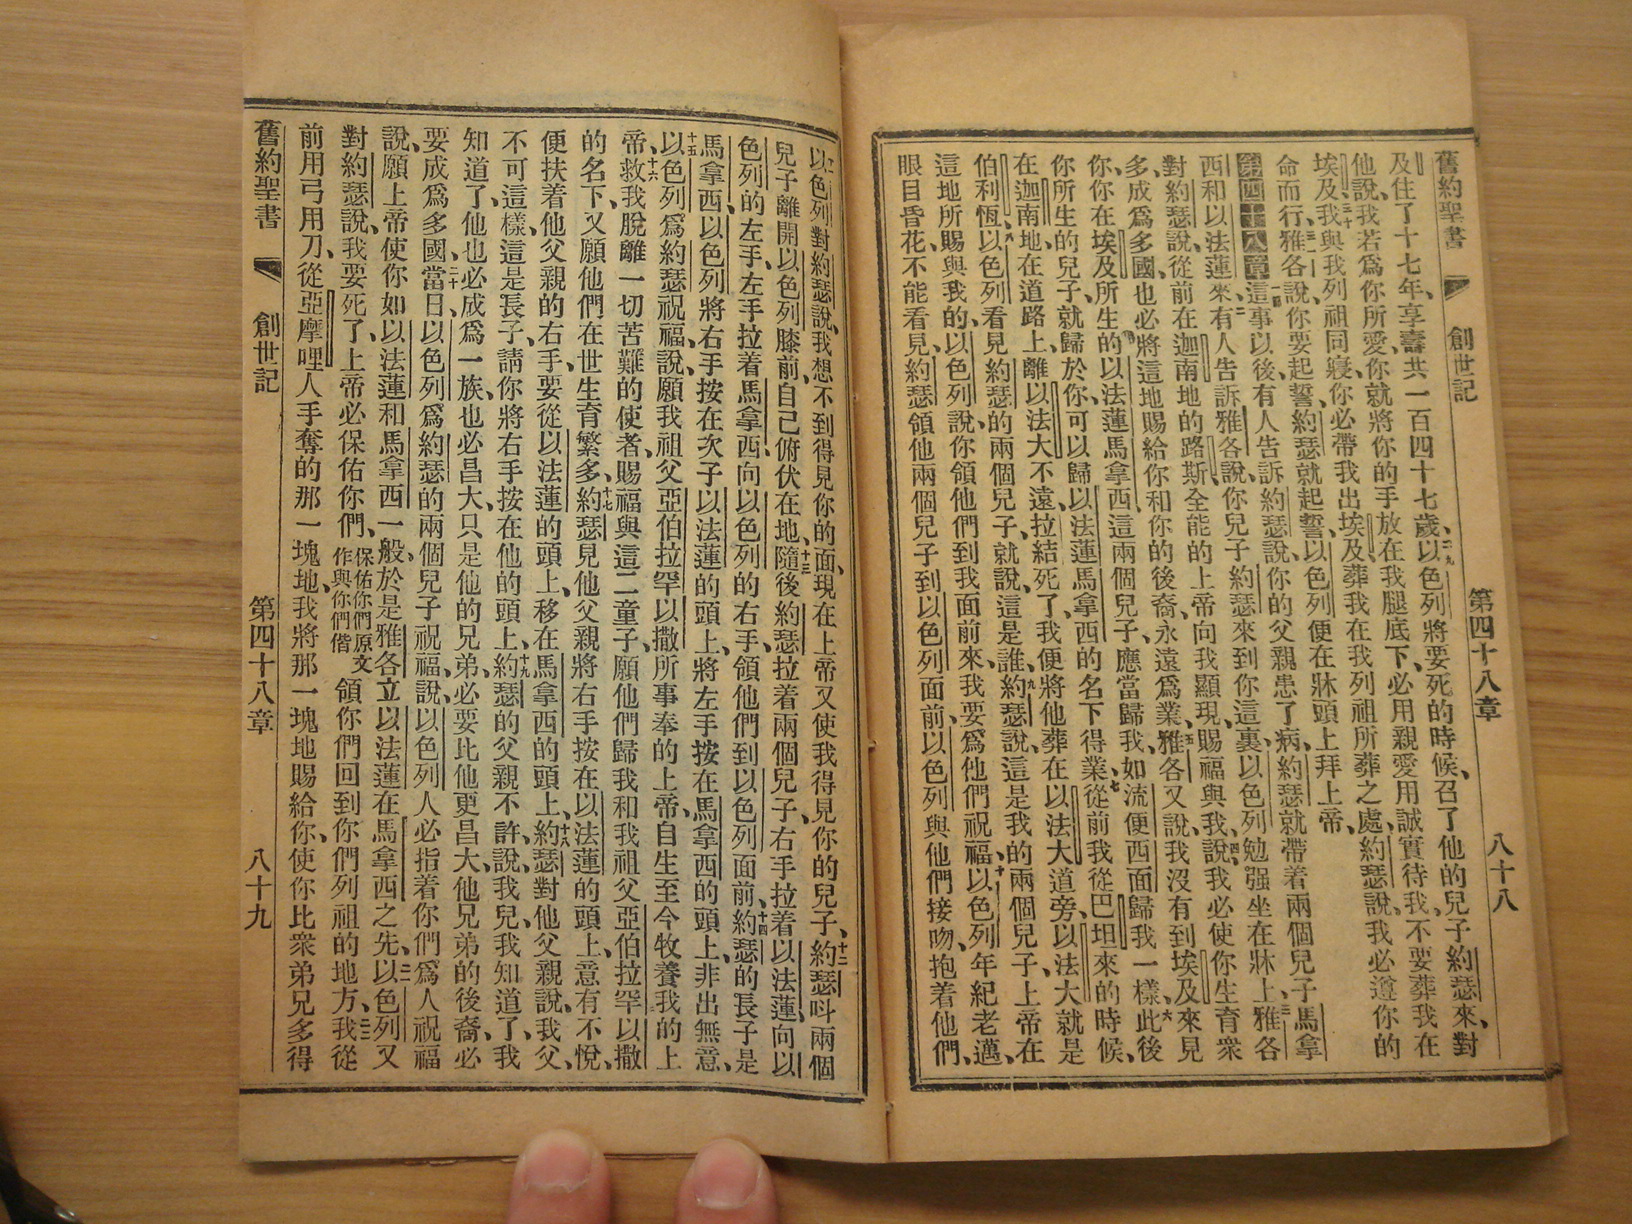 舊約聖書 創世記 第四十八章 八十八
及住了十七年、享壽共一百四十七歲、二九以色列將要死的時候、召了他的兒子約瑟來、對
他說、我若爲你所愛、你就將你的手放在我腿底下、必用親愛用誠實待我、不要葬我在
埃及、三十我與我列祖同寢、你必帶我出埃及、葬我在我列祖所葬之處、約瑟說、我必遵你的
命而行、三一雅各說、你要起誓、約瑟就起誓、以色列便在牀頭上拜上帝、
第四十八章一這事以後、有人告訴約瑟說、你的父親患了病、約瑟就帶着兩個兒子馬拿
西和以法蓮來、二有人告訴雅各說、你兒子約瑟來到你這裏、以色列勉强坐在牀上、三雅各
對約瑟說、從前在迦南地的路斯、全能的上帝向我顯現、賜福與我、四說、我必使你生育衆
多、成爲多國、也必將這地賜給你和你的後裔、永遠爲業、五雅各又說、我沒有到埃及來見
你、你在埃及所生的以法蓮馬拿西、這兩個兒子、應當歸我、如流便西面歸我一樣、六此後
你所生的兒子、就歸於你、可以歸以法蓮馬拿西的名下得業、七從前我從巴坦來的時候、
在迦南地、在道路上、離以法大不遠、拉結死了、我便將他葬在以法大道旁、以法大就是
伯利恆、八以色列看見約瑟的兩個兒子、就說、這是誰、九約瑟說、這是我的兩個兒子、上帝在
這地所賜與我的、以色列說、你領他們到我面前來、我要爲他們祝福、十以色列年紀老邁、
眼目昏花、不能看見、約瑟領他兩個兒子到以色列面前、以色列與他們接吻、抱着他們、
十一以色列對約瑟說、我想不到得見你的面、現在上帝又使我得見你的兒子、十二約瑟呌兩個
兒子離開以色列膝前、自己俯伏在地、十三隨後約瑟拉着兩個兒子、右手拉着以法蓮、向以
色列的左手、左手拉着馬拿西、向以色列的右手、領他們到以色列面前、十四約瑟的長子是
馬拿西、以色列將右手按在次子以法蓮的頭上、將左手按在馬拿西的頭上、非出無意、
十五以色列爲約瑟祝福、說、願我祖父亞伯拉罕、以撒所事奉的上帝、自生至今牧養我的上
帝、十六救我脫離一切苦難的使者、賜福與這二童子、願他們歸我和我祖父亞伯拉罕以撒
的名下、又願他們在世生育繁多、十七約瑟見他父親將右手按在以法蓮的頭上、意有不悅、
便扶着他父親的右手、要從以法蓮的頭上、移在馬拿西的頭上、十八約瑟對他父親說、我父、
不可這樣、這是長子、請你將右手按在他的頭上、十九約瑟的父親不許、說、我兒、我知道了、我
知道了、他也必成爲一族、也必昌大、只是他的兄弟、必要比他更昌大、他兄弟的後裔、必
要成爲多國、二十當日以色列爲約瑟的兩個兒子祝福、說、以色列人必指着你們爲人祝福
說、願上帝使你如以法蓮和馬拿西一般、於是雅各立以法蓮在馬拿西之先、二一以色列又
對約瑟說、我要死了、上帝必保佑你們、保佑你們原文作與你們偕領你們回到你們列祖的地方、二二我從
前用弓用刀、從亞摩哩人手奪的那一塊地、我將那一塊地賜給你、使你比衆弟兄多得
舊約聖書 創世記 第四十八章 八十九